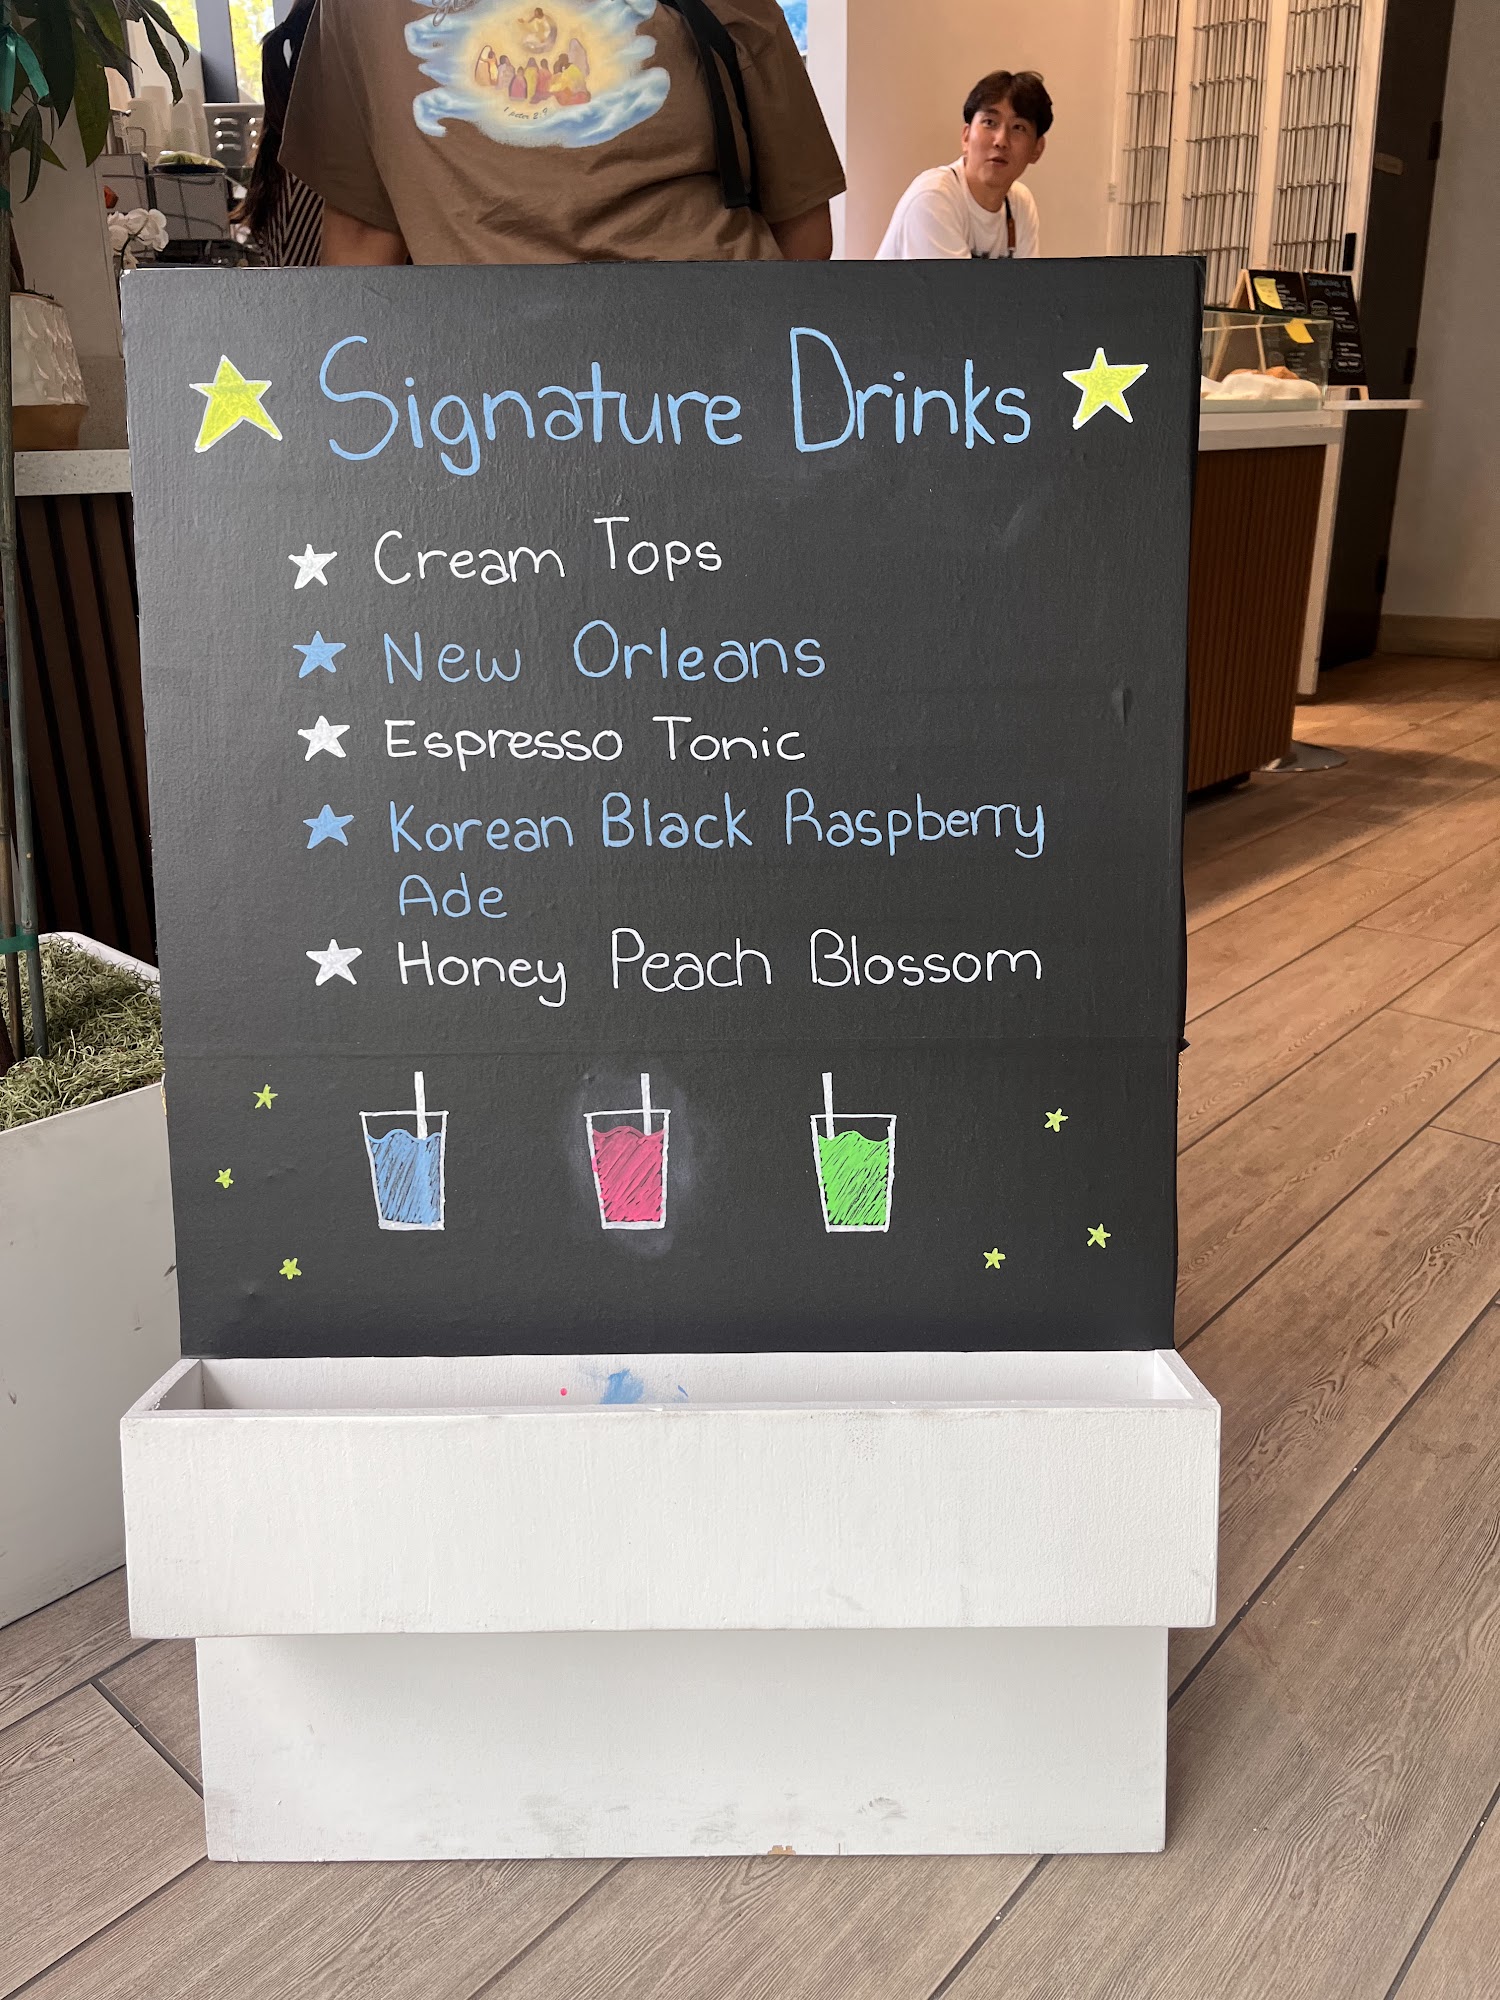 1 peter 2:9
Signature Drinks
Cream Tops
New Orleans
Espresso Tonic
Korean Black Raspberry
Ade
Honey Peach Blossom